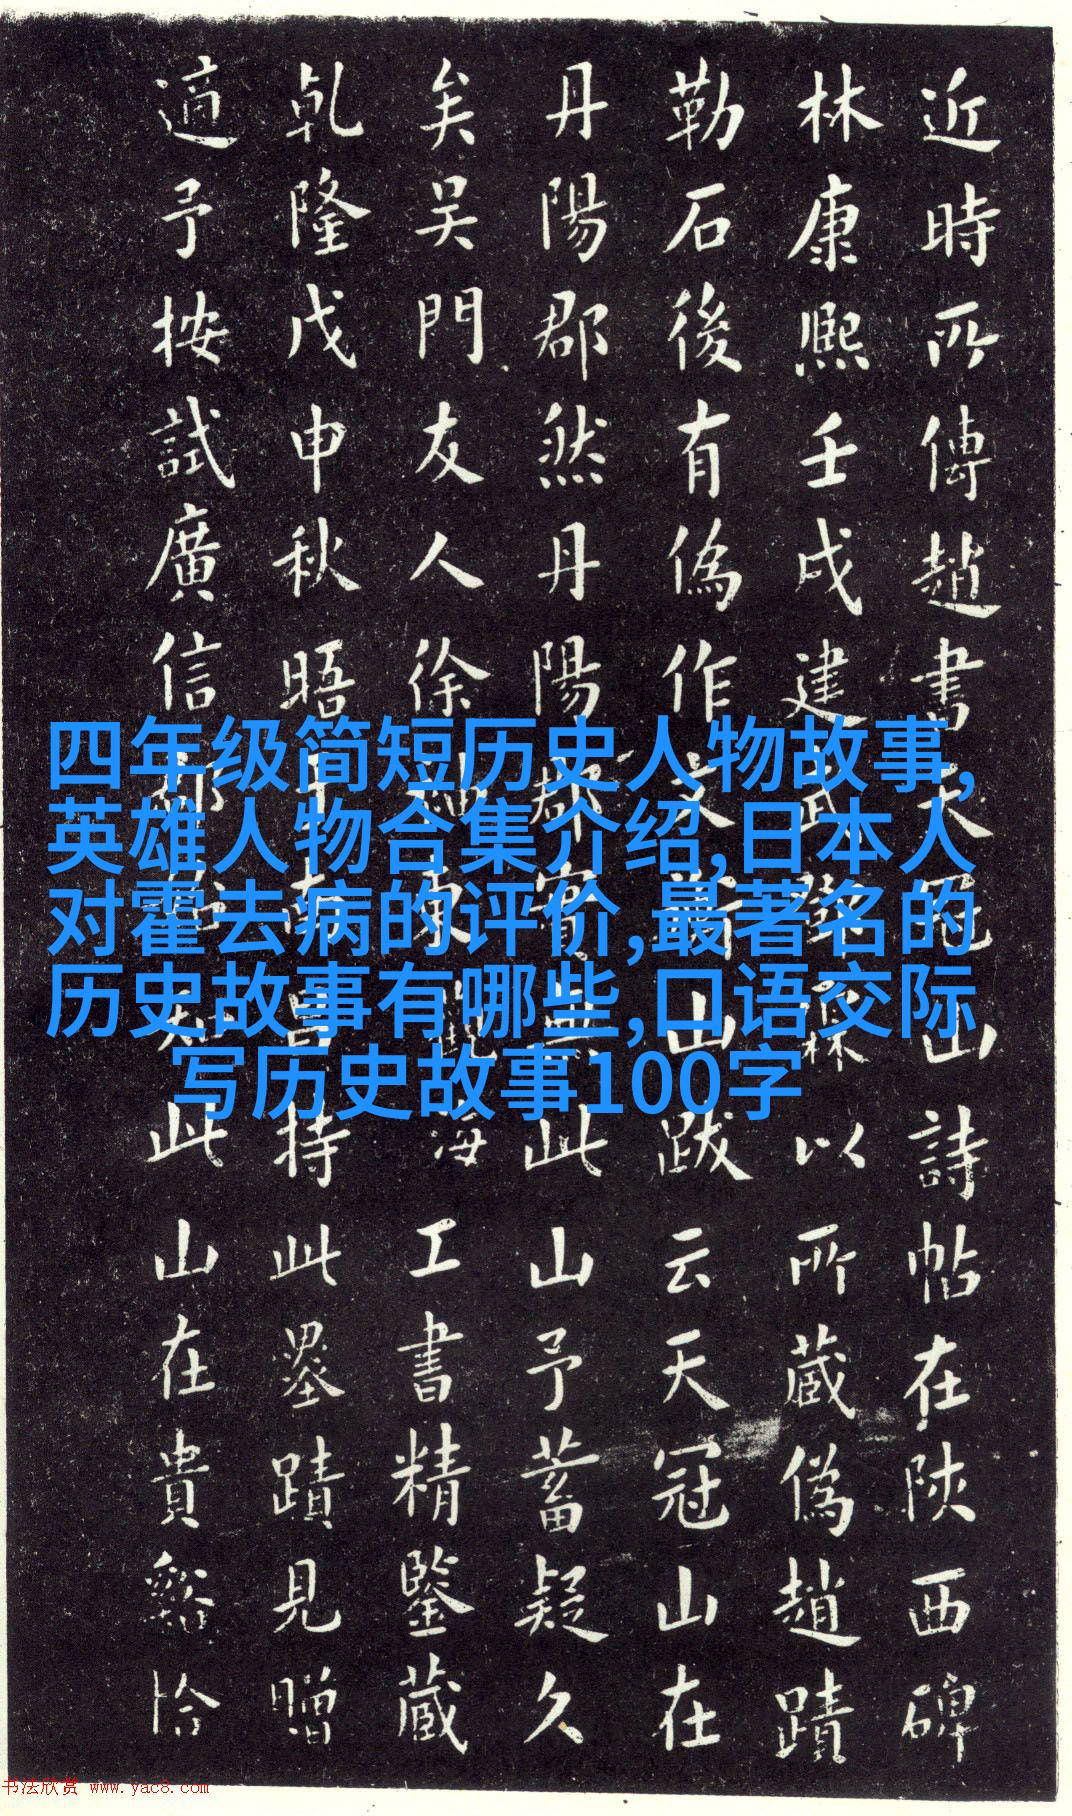 近時所傳趙書天冠山詩帖在陝西碑
林康熙壬戌建武霖以所藏偽趙蹟
勒石後有偽作文山跋云天冠山在
丹陽郡然丹陽郡實無此山予蓄疑久
矣吳門友人徐東海工書精鑒藏
乹隆戊申秋晤昌持此墨蹟見贈
適予按試廣信郡知此山在貴谿恰
四年级简短历史人物故事,
英雄人物合集介绍,日本人
对霍去病的评价,最著名的
历史故事有哪些,口语交际
写历史故事100字
书法欣赏 www.yac8.com